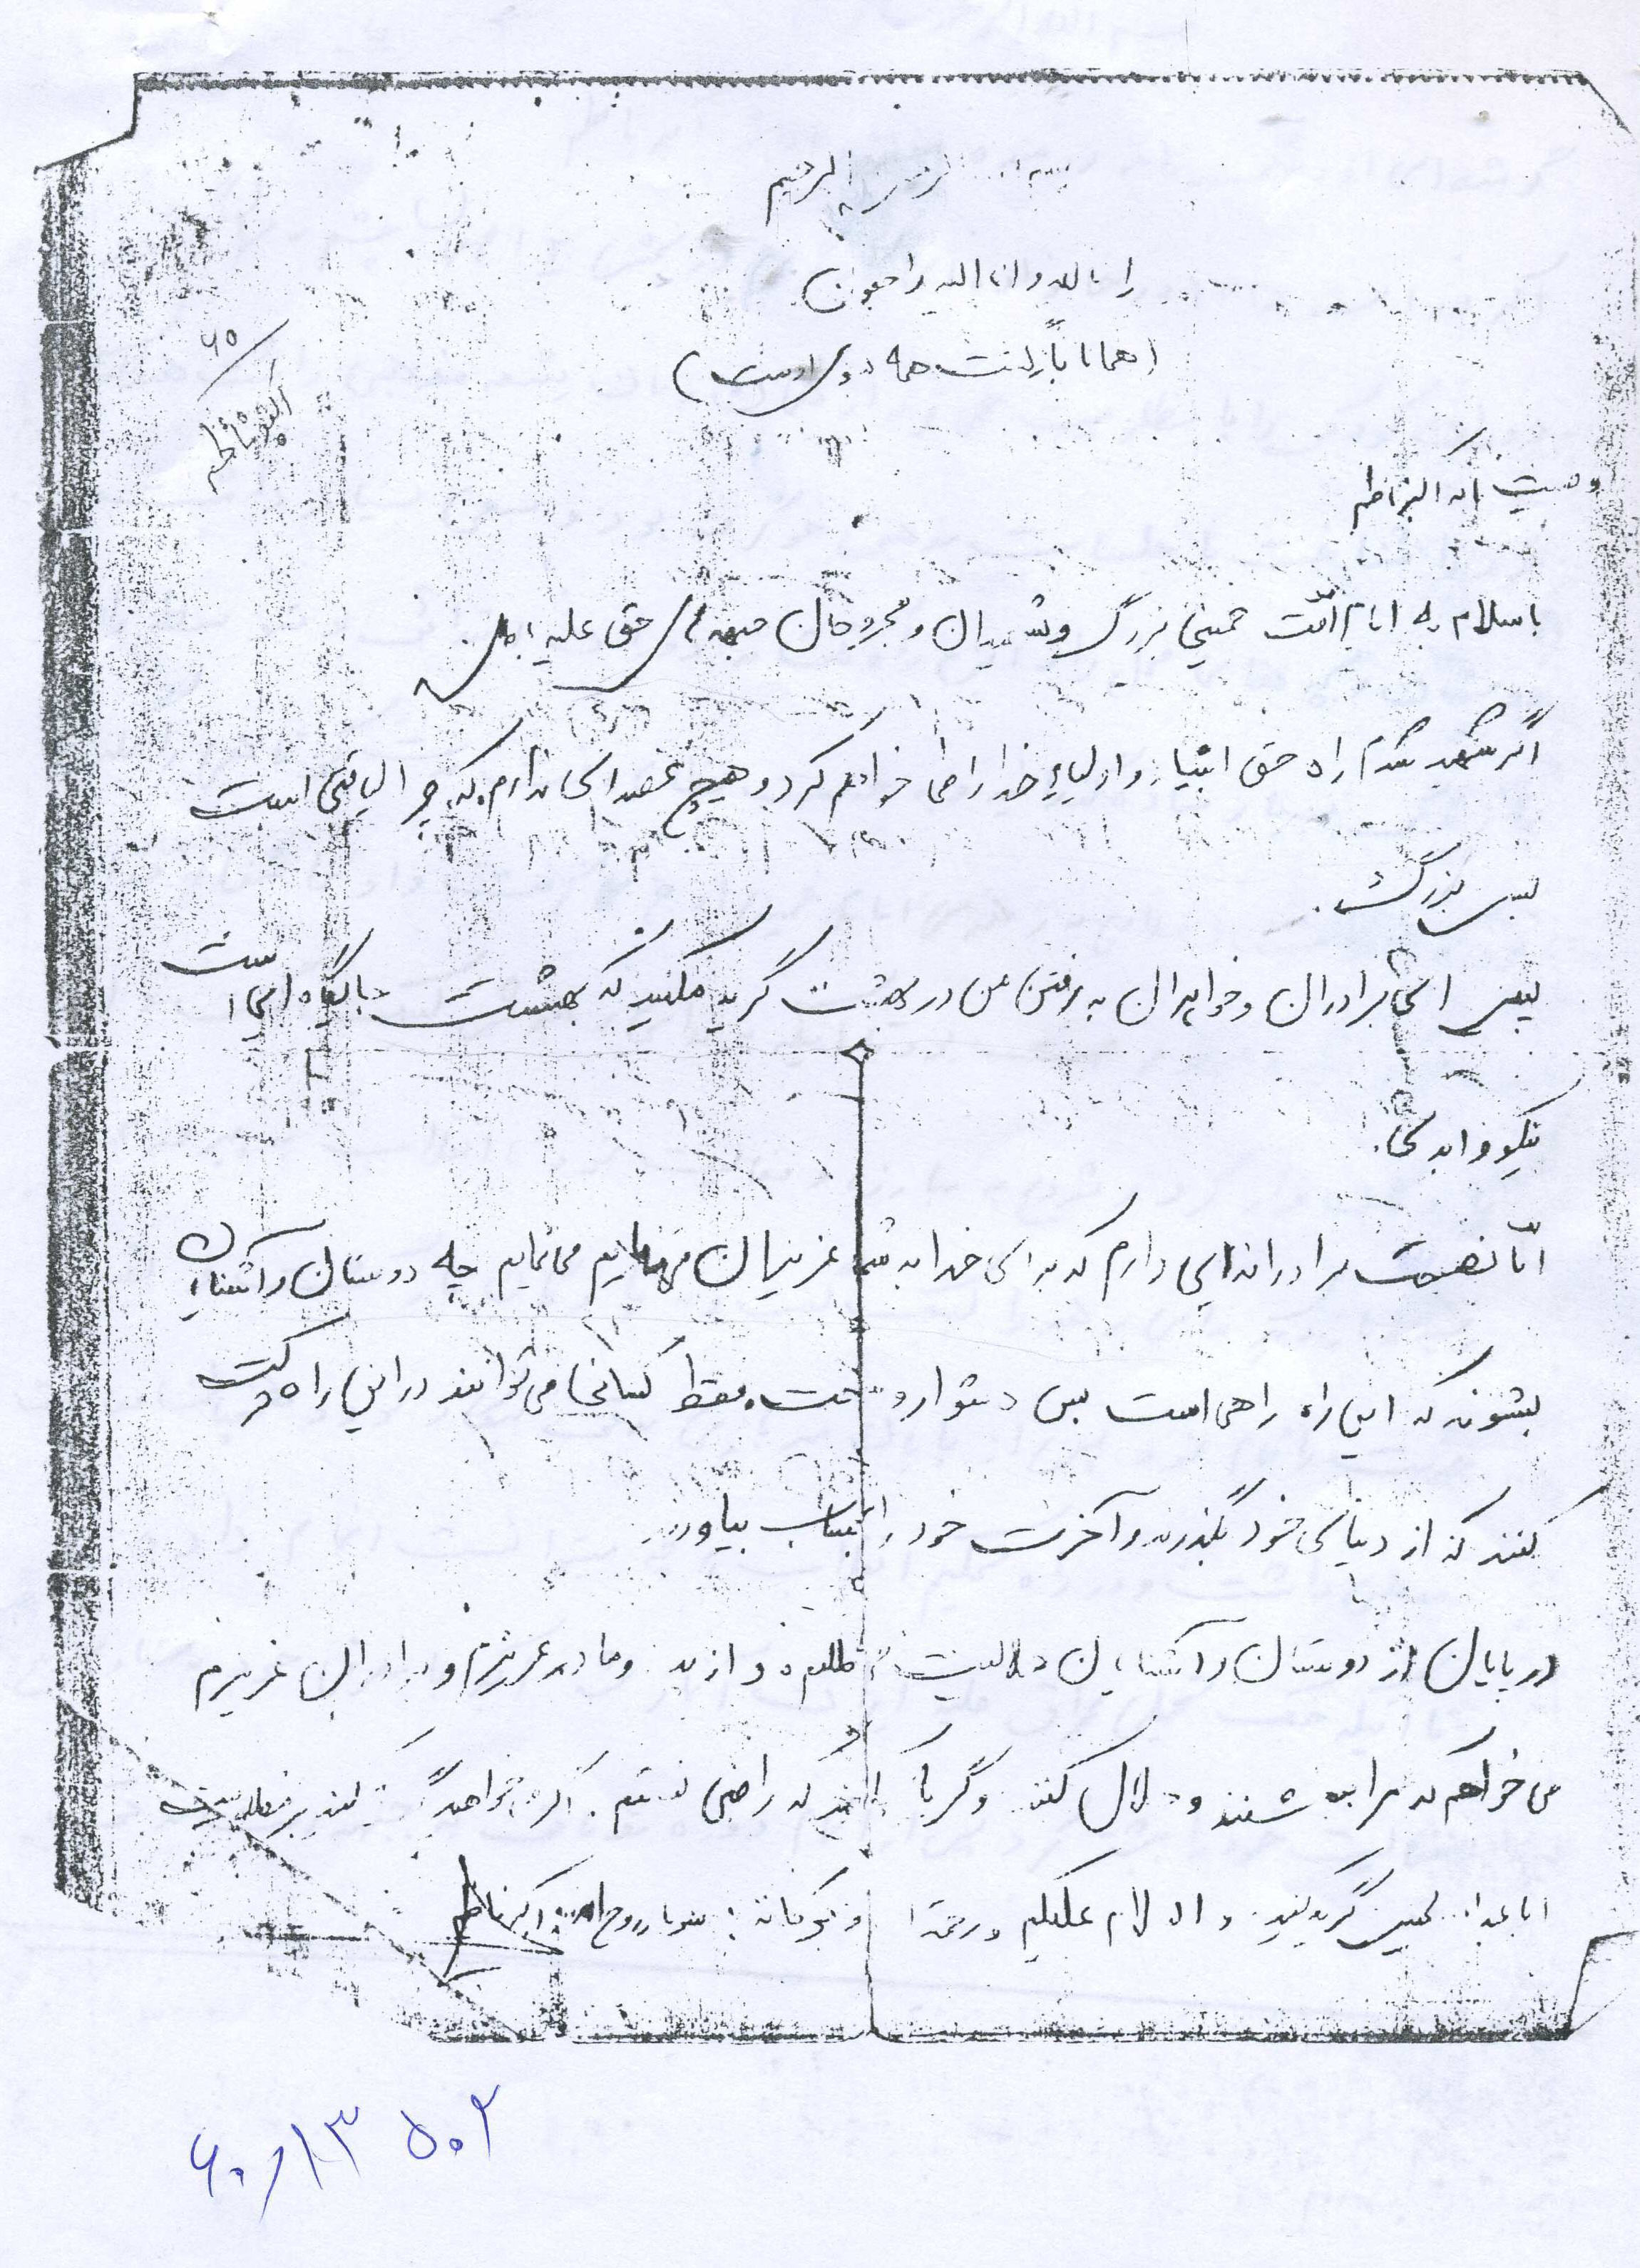 بسم الله الرحمن الرحیم
انا لله و انا الیه راجعون
(همانا بازگشت همه بسوی اوست)
۶۵
اکبر ناظم
وصیت نامه اکبر ناظم
با سلام به امام امت خمینی بزرگ و شهیدان و مجروحان جبهه های حق علیه باطل
اگر شهید شدم راه حق انبیاء و اولیاء خدا را طی خواهم کرد و هیچ غصه ای ندارم که چرا لیاقتی است
بس بزرگ.
پس ای برادران و خواهران به رفتن من در بهشت گریه مکنید که بهشت جایگاه ای است
نیکو و ابدی.
امّا نصیحت برادرانه ایی دارم که برای خدا به شما عزیزان می نمایم چه دوستان و آشنایان
بشنوند که این راه راهی است بس دشوار و سخت فقط کسانی می توانند در این راه حرکت
کنند که از دنیای خود بگذرند و آخرت خود را بحساب بیاورند.
در پایان از دوستان و آشنایان حلالیت می طلبم و از پدر و مادر عزیزم و برادران عزیزم
می خواهم که مرا ببخشند و حلال کنند و گریه نکنند که راضی نیستم. اگر می خواهند گریه کنند بر مظلومیت
ابا عبدالله الحسین گریه کنید. و السلام علیکم و رحمة الله و برکاته اکبر ناظم
۵۰۲ ۶۰/۱۳